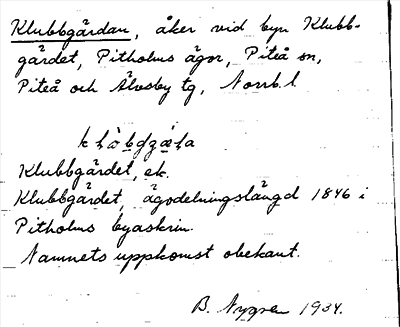 Klubbgärdan, åker vid byn Klubb-
gärdet, Pitholms ägor, Piteå sn,
Piteå och Älvsby tg, Norrb. l.
Klubbgärdet, ek.
Klubbgärdet, ägodelningslängd 1846 i
Pitholms byaskrin.
Namnets uppkomst obekant.
B. Nygren 1934.